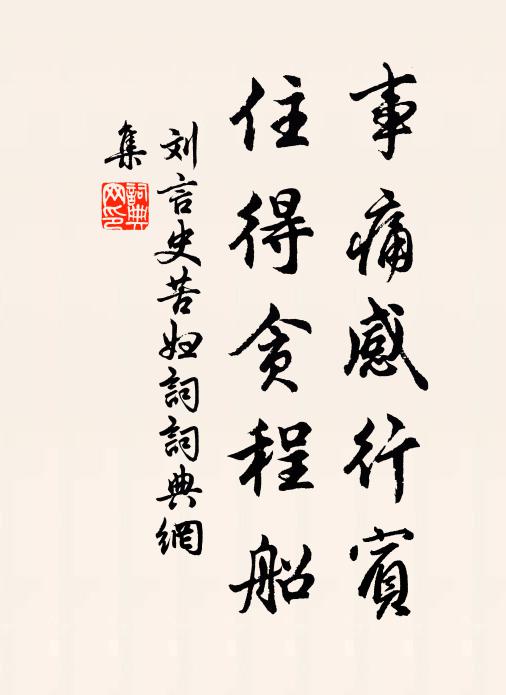 事痛感行賓
住得貪程船
刘言史苦妇詞詞典網
集
詞典
网印